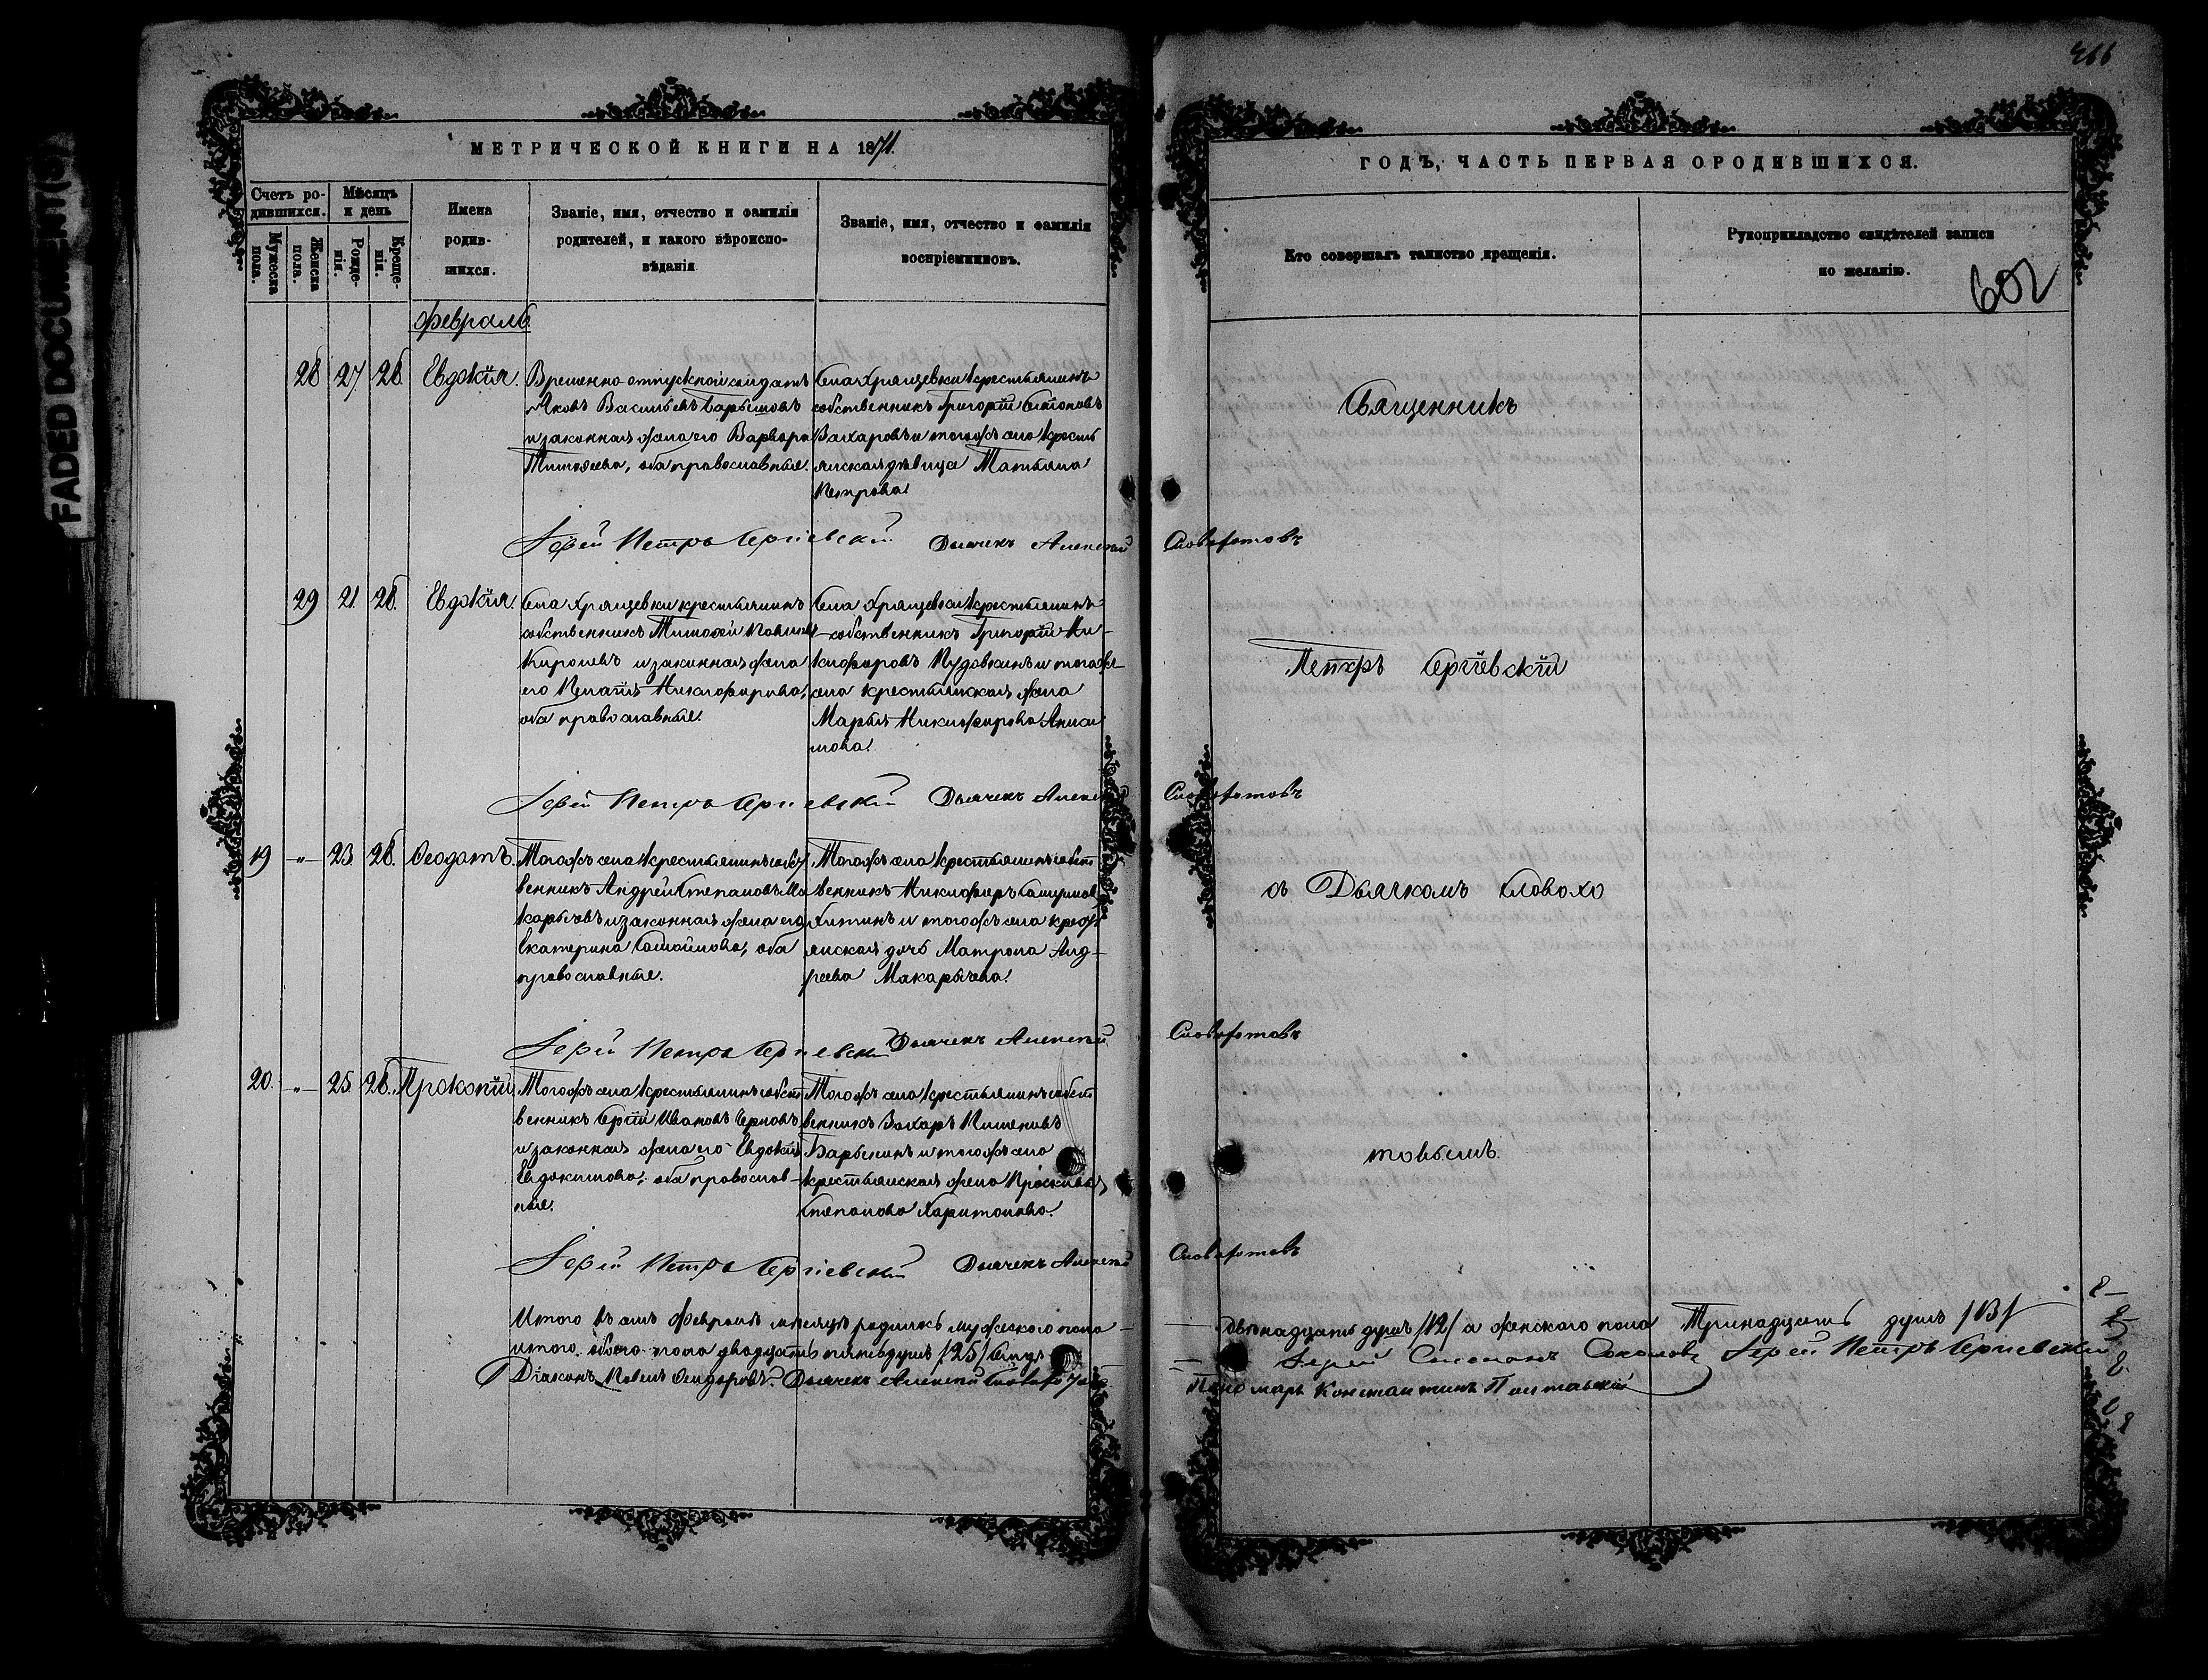 FADED DOCUMENT(S)
466
МЕТРИЧЕСКОЙ КНИГИ НА 1871.
ГОДЪ, ЧАСТЬ ПЕРВАЯ О РОДИВШИХСЯ.
Счетъ ро-
дившихся.
Мѣсяцъ
и день
Мужеска
пола.
Женска
пола.
Рожде-
нія.
Креще-
нія.
Имена
родив-
шихся.
Званіе, имя, отчество и фамилія
родителей, и какого вѣроиспо-
вѣданія
Званіе, имя, отчество и фамилія
воспріемниковъ.
Кто совершалъ таинство крещенія.
Рукоприкладство свидѣтелей записи
по желанію.
602
Февраль
28 27 28. Евдокія.
Временно отпускной солдатъ
Яковъ Васильевъ Барышовъ
и законная жена его Варвара
Тимофеева, оба православные.
Села Хрящевки крестьянинъ
собственникъ Григорій
Захаровъ и тогожъ села кресть
янская дѣвица Татьяна
Петрова.
Священникъ
Іерей Петръ Сергіевскій Дьячекъ Алексей Словохотовъ
29 21 28. Евдокія.
Села Хрящевки крестьянинъ
собственникъ Тимофей
и законная жена
его Пелагія Никифорова,
оба православные.
Села Хрящевки крестьянинъ
собственникъ Григорій Ни-
кифоровъ Пудовкинъ и тогожъ
села крестьянская жена
Марья Никифорова Аниси
мова.
Петръ Сергіевскій
Іерей Петръ Сергіевскій Дьячекъ Алексей Словохотовъ
19 -"- 23 28. Феодотъ.
Тогожъ села крестьянинъ собст
венникъ Андрей Степановъ Ма
карычевъ и законная жена его
Екатерина оба
православные.
Тогожъ села крестьянинъ собст
венникъ Никифоръ
и тогожъ села крест
янская дочь Матрона Анд-
реева Макарычева.
съ Дьячкомъ Словохо
Іерей Петръ Сергіевскій Дьячекъ Алексей Словохотовъ
20. -"- 25 28. Прокопій
Тогожъ села крестьянинъ собст
венникъ Сергій Ивановъ Черновъ
и законная жена его Евдокія
Евдокимова, оба православ-
ные.
Тогожъ села крестьянинъ собст
венникъ Захаръ
Барышинъ и тогожъ села
крестьянская жена
Степанова Харитонова.
товымъ.
Іерей Петръ Сергіевскій Дьячекъ Алексей Словохотовъ
Итого въ Февралѣ мѣсяцѣ родилось мужескаго пола - двѣнадцать душъ /12/ а женскаго пола Тринадцать душъ /13/
итого обоего пола двадцать пять душъ /25/ Іерей Соколовъ Іерей Петръ Сергіевскій
Діаконъ Павелъ Дьячекъ Алексей Словохотовъ Пономарь Константинъ